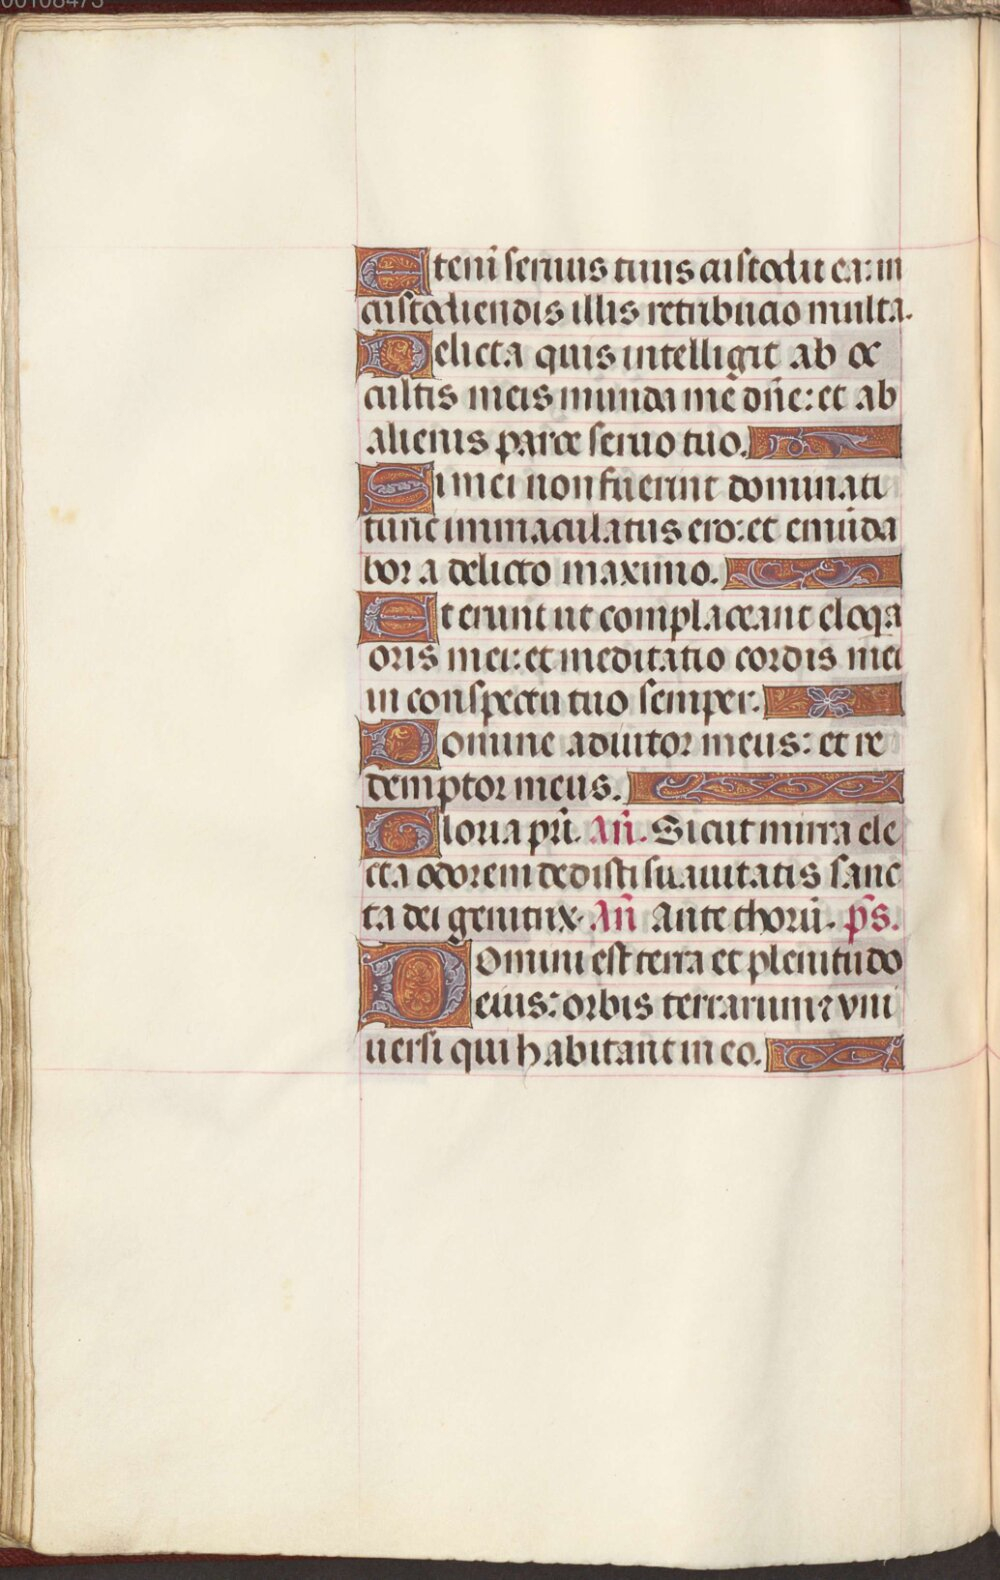 00108473
Eteni᷑ seruus tuus custodit ea: in
custodiendis illis retributio multa.
Delicta quis intelligit ab oc
cultis meis munda me dn̄e: et ab
alienis parce seruo tuo.
Si mei non fuerint dominati
tunc immaculatus ero: et emūda
bor a delicto maximo.
Et erunt ut complaceant eloq̄a
oris mei: et meditatio cordis mei
in conspectu tuo semper.
Domine adiutor meus: et re
demptor meus.
Gloria pr̄i. An̄. Sicut mirra ele
cta odorem dedisti suauitatis sanc
ta dei genitrix. An̄ Ante thorū. p̄s.
Domini est terra et plenitudo
eius: orbis terrarum ⁊ vni
uersi qui habitant in eo.